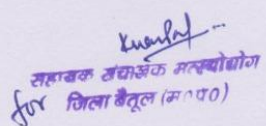 सहायक संचालक मत्स्योद्योग
for जिला बैतूल (म०प्र०)